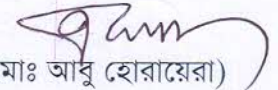 মাঃ আবু হোরায়েরা)